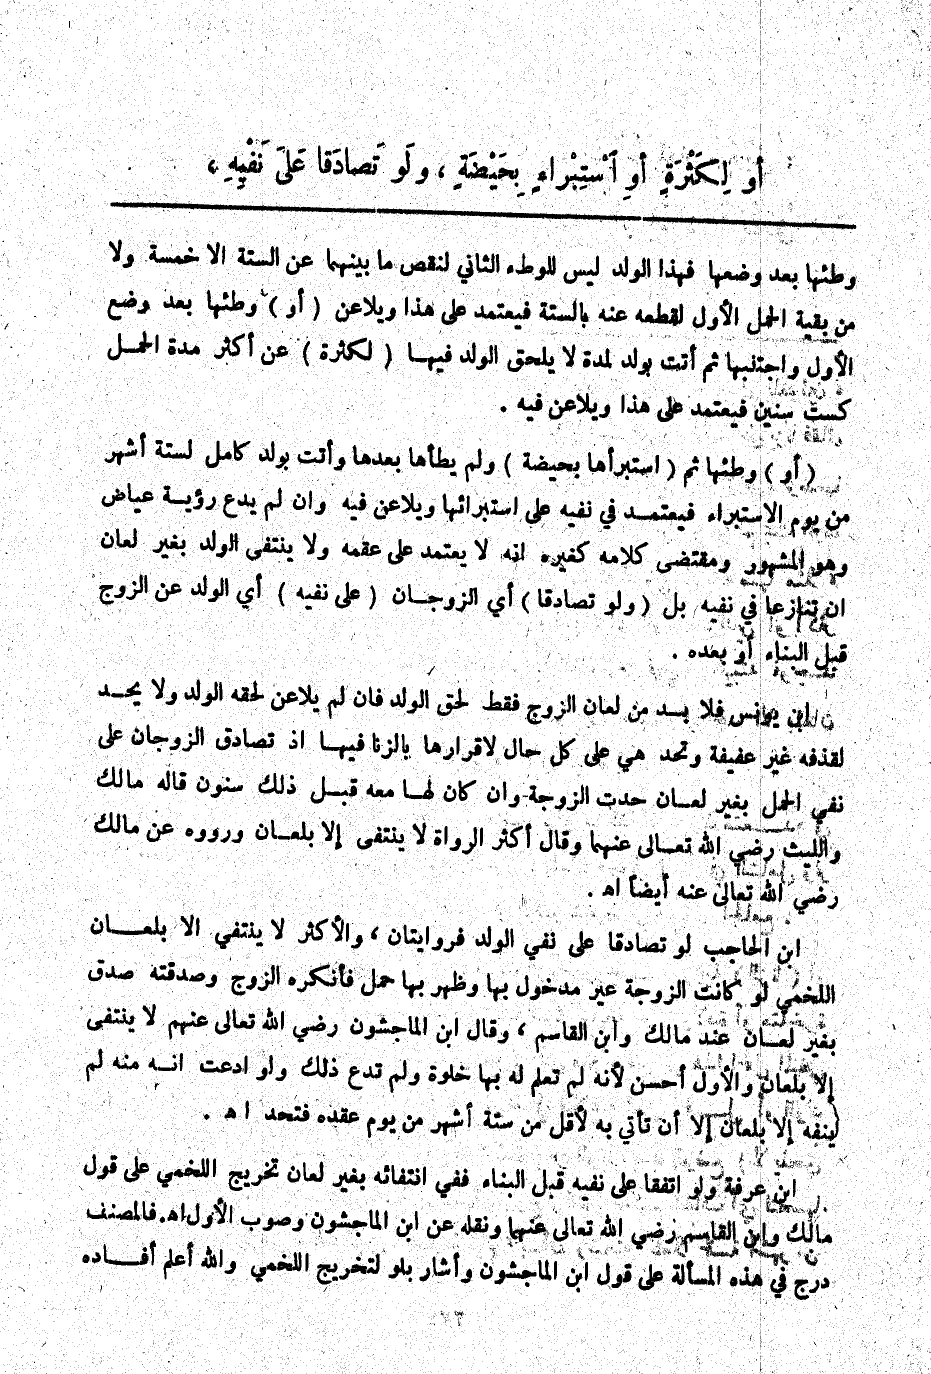 أو لِكَثْرَةٍ أوِ ٱسْتِبْراءٍ بِحَيْضَةٍ ، ولَو تَصادَقا عَلىَ نَفْيِهِ ،
وطئها بعد وضعها فهذا الولد ليس للوطء الثاني لنقص ما بينهما عن الستة الا خمسة ولا
من بقية الحمل الأول لقطعه عنه بالستة فيعتمد على هذا ويلاعن ( أو ) وطئها بعد وضع
الأول واجتنبها ثم أتت بولد لمدة لا يلحق الولد فيهـا ( لكثرة ) عن أكثر مدة الحمـل
كست سنين فيعتمد على هذا ويلاعن فيه .
( أو ) وطئها ثم ( استبرأها بحيضة ) ولم يطأها بعدها وأتت بولد كامل لستة أشهر
من يوم الاستبراء فيعتمـد في نفيه على استبرائها ويلاعن فيه وان لم يدع رؤيـة عياض
وهو المشهور ومقتضى كلامه كغيره انه لا يعتمد على عقمه ولا ينتفى الولد بغير لعان
ان تنازعا في نفيه بل ( ولو تصادقا ) أي الزوجـان ( على نفيه ) أي الولد عن الزوج
قبل البناء أو بعده .
ابن يونس فلا بـد من لعان الزوج فقط لحق الولد فان لم يلاعن لحقه الولد ولا يحـد
لقذفه غير عفيفة وتحد هي على كل حال لاقرارها بالزنا فيهـا اذ تصادق الزوجان على
نفي الحمل بغير لعـان حدت الزوجة وان كان لهـا معه قبـل ذلك سنون قاله مالك
والليث رضي الله تعـالى عنهما وقال أكثر الرواة لا ينتفى إلا بلعـان ورووه عن مالك
رضي الله تعالى عنه أيضاً اه .
ابن الحاجب لو تصادقا على نفي الولد فروايتان ، والأكثر لا ينتفي الا بلعـــان
اللخمي لو كانت الزوجة غير مدخول بها وظهر بها حمل فأنكره الزوج وصدقته صدق
بغير لعـان عند مالك وابن القاسم ، وقال ابن الماجشون رضي الله تعالى عنهم لا ينتفى
إلا بلعان والأول أحسن لأنه لم تعلم له بها خلوة ولم تدع ذلك ولو ادعت انـه منه لم
ينفه إلا بلعان إلا أن تأتي به لأقل من ستة أشهر من يوم عقده فتحد ا ه .
ابن عرفة ولو اتفقا على نفيه قبل البناء ففي انتفائه بغير لعان تخريج اللخمي على قول
مالك وابن القاسم رضي الله تعالى عنهما ونقله عن ابن الماجشون وصوب الأول اه. فالمصنف
درج في هذه المسألة على قول ابن الماجشون وأشار بلو لتخريج اللخمي والله أعلم أفـــاده